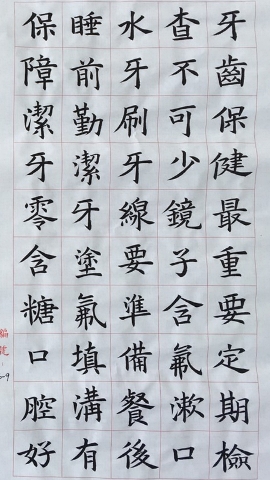 牙齒保健最重要定期檢
查不可少鏡子含氟漱口
水牙刷牙線要準備餐後
睡前勤潔牙塗氟填溝有
保障潔牙零含糖口腔好
編號:
-9